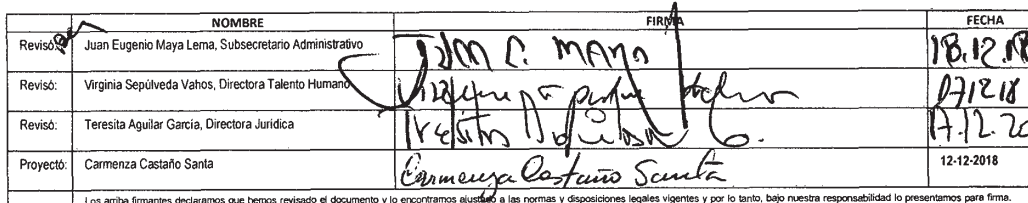 NOMBRE FIRMA FECHA
Revisó: Juan Eugenio Maya Lema, Subsecretario Administrativo Juan E. Maya 18.12.18
Revisó: Virginia Sepúlveda Vahos, Directora Talento Humano 071218
Revisó: Teresita Aguilar García, Directora Jurídica Teresita Aguilar G. 17.12.20
Proyectó: Carmenza Castaño Santa Carmenza Castaño Santa 12-12-2018
Los arriba firmantes declaramos que hemos revisado el documento y lo encontramos ajustado a las normas y disposiciones legales vigentes y por lo tanto, bajo nuestra responsabilidad lo presentamos para firma.